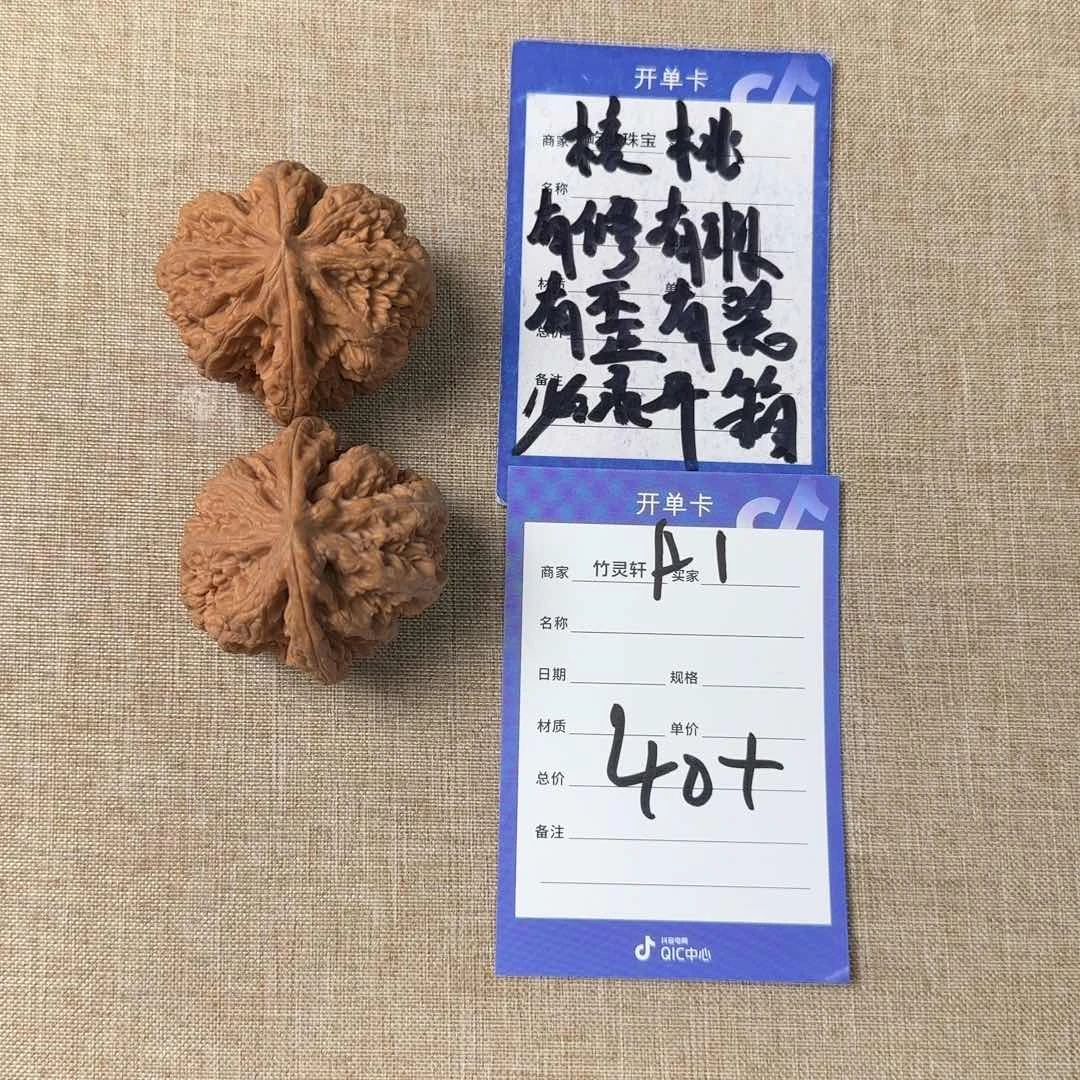 开单卡
商家 珠宝
核桃
名称
有修有瑕
材质 单
有歪有裂
总价
备注
必录开箱
开单卡
商家 竹灵轩 买家 A1
名称
日期 规格
材质 单价
40+
总价
备注
抖音电商
QIC中心